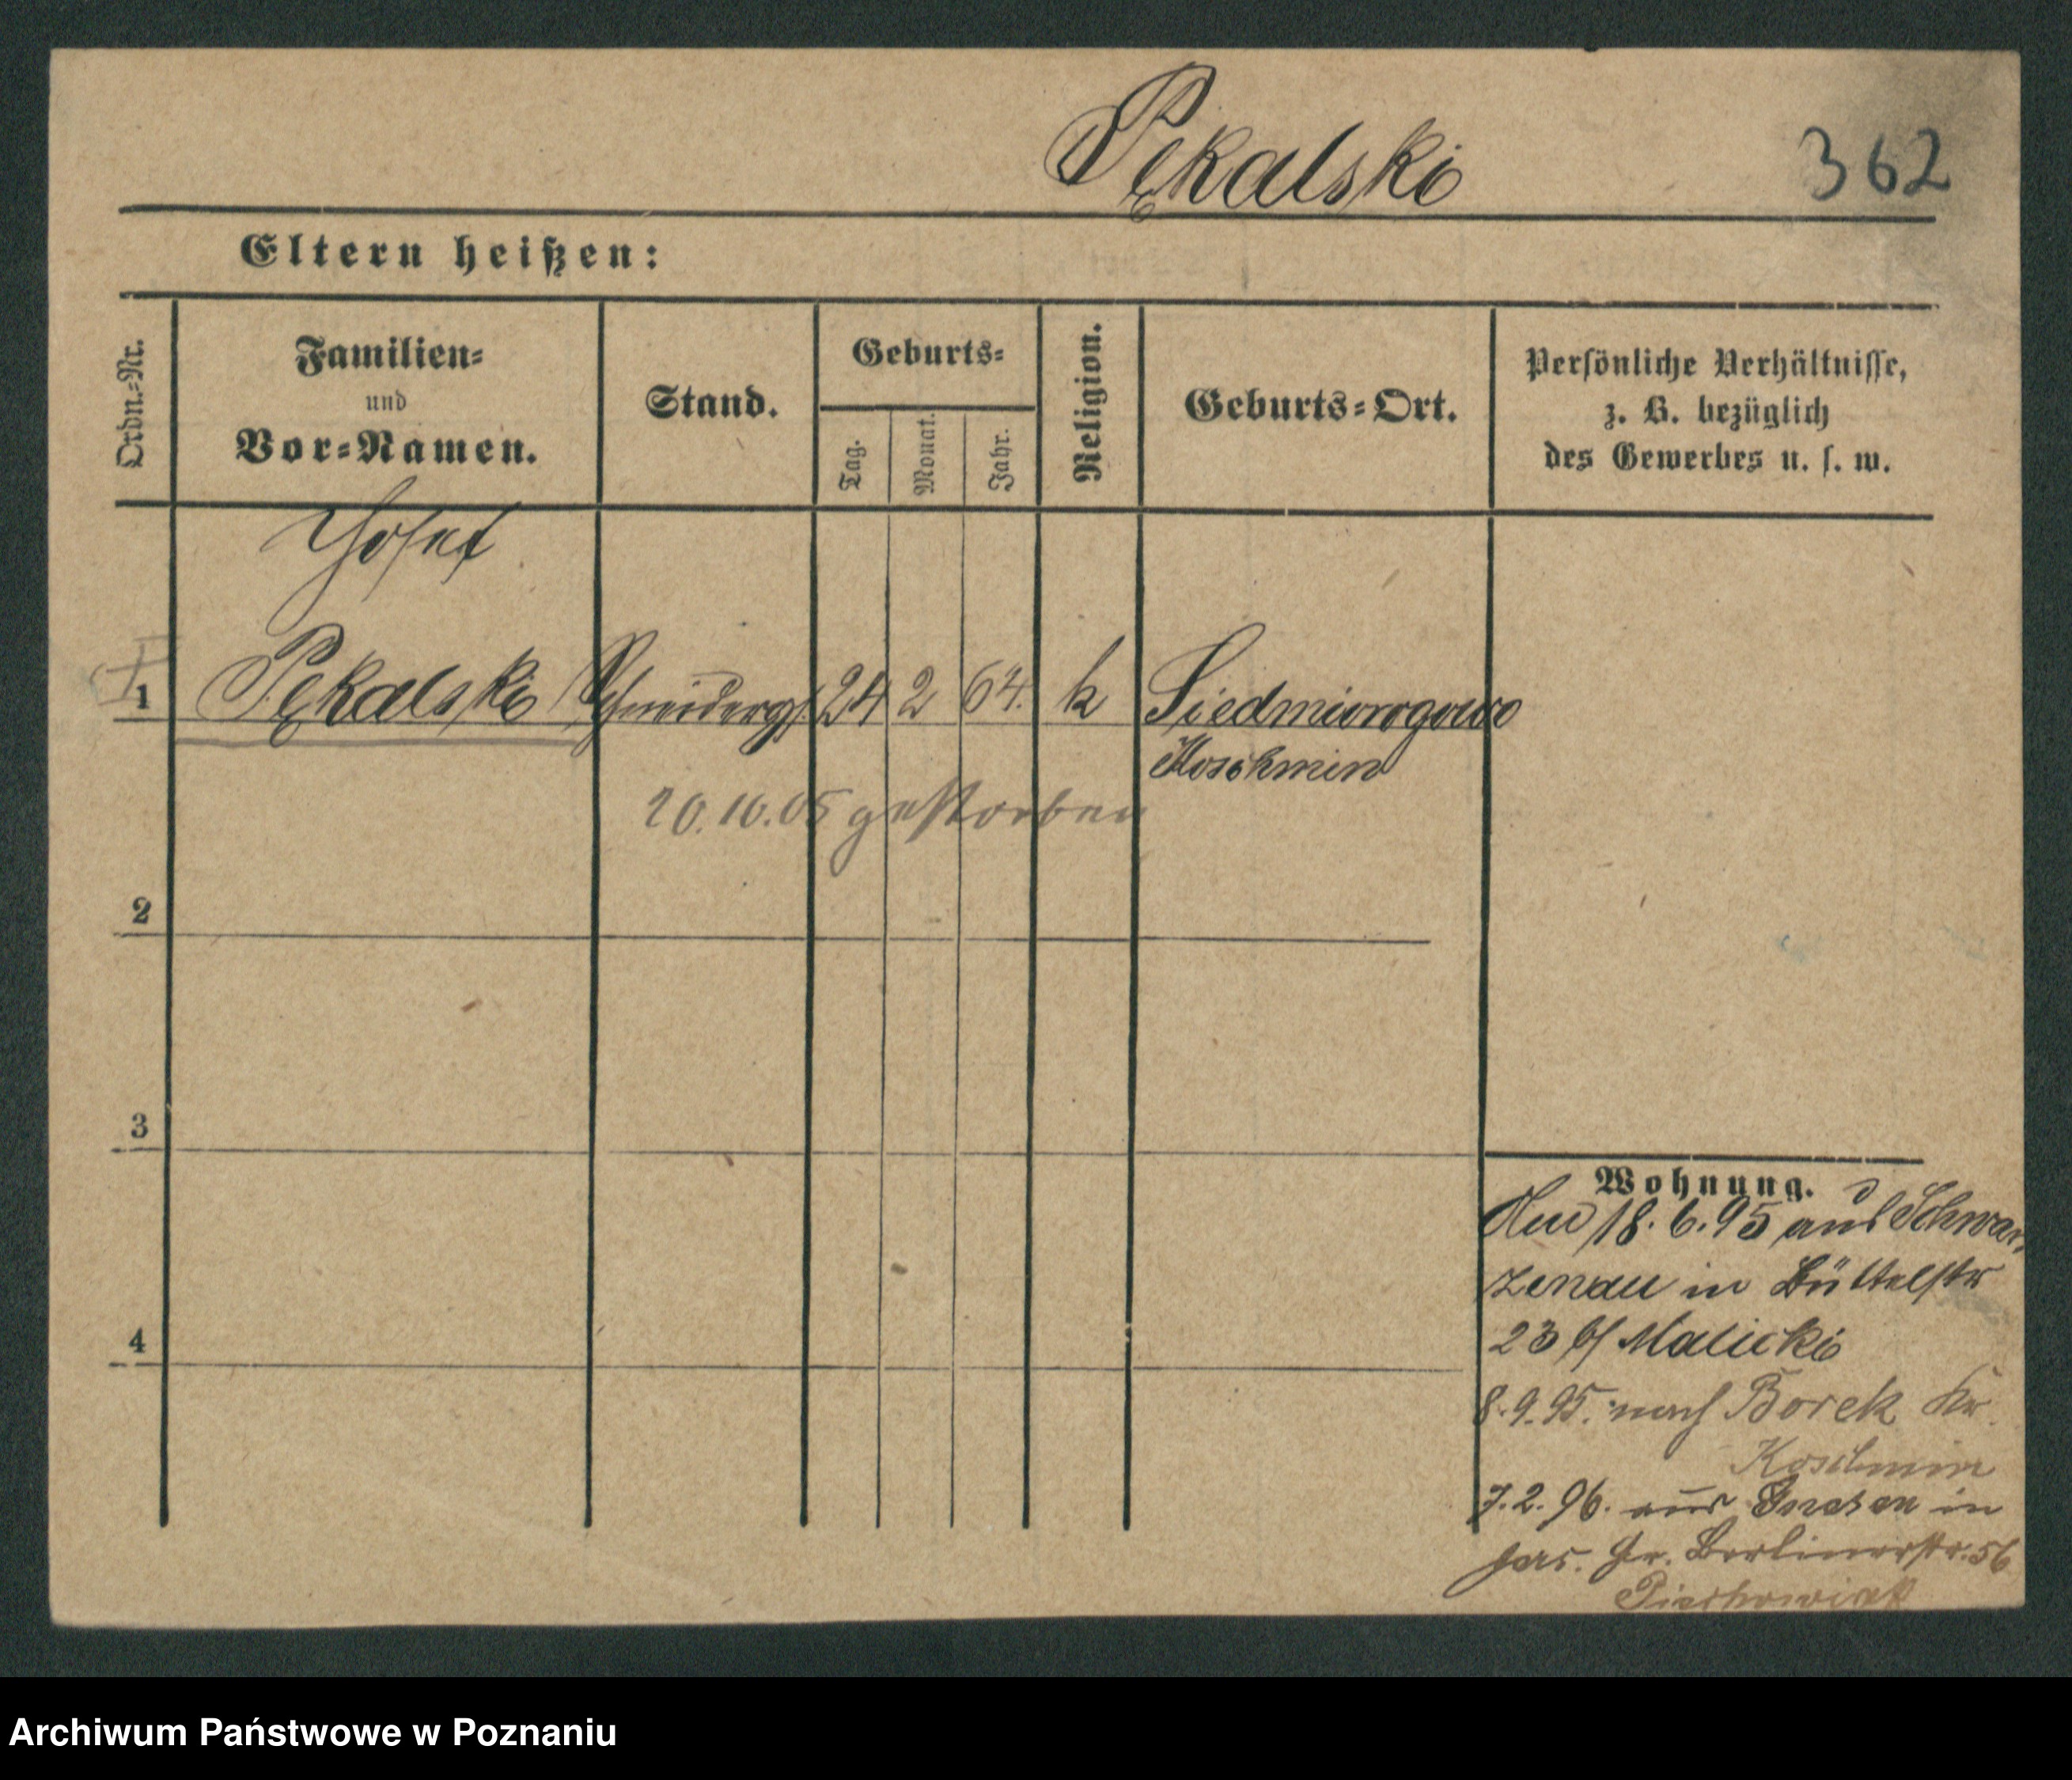 Pękalski
362
Eltern heißen:
Ordn.-Nr.
Familien-
und
Vor-Namen.
Stand.
Geburts-
Tag.
Monat.
Jahr.
Religion.
Geburts-Ort.
Persönliche Verhältnisse,
z. B. bezüglich
des Gewerbes u. s. w.
Josef
1 Pękalski Schneiderges. 24 2 64. k Siedmiorogowo
Koschmin
20.10.05 gestorben
2
3
4
Wohnung.
18. 6. 95 aus Schwar
zenau in Büttelstr
23 b/ Malicki
8.9.95. nach Borek Kr.
Koschmin
7.2.96. aus Gnesen in
Gr. Berlinerstr. 56
Archiwum Państwowe w Poznaniu